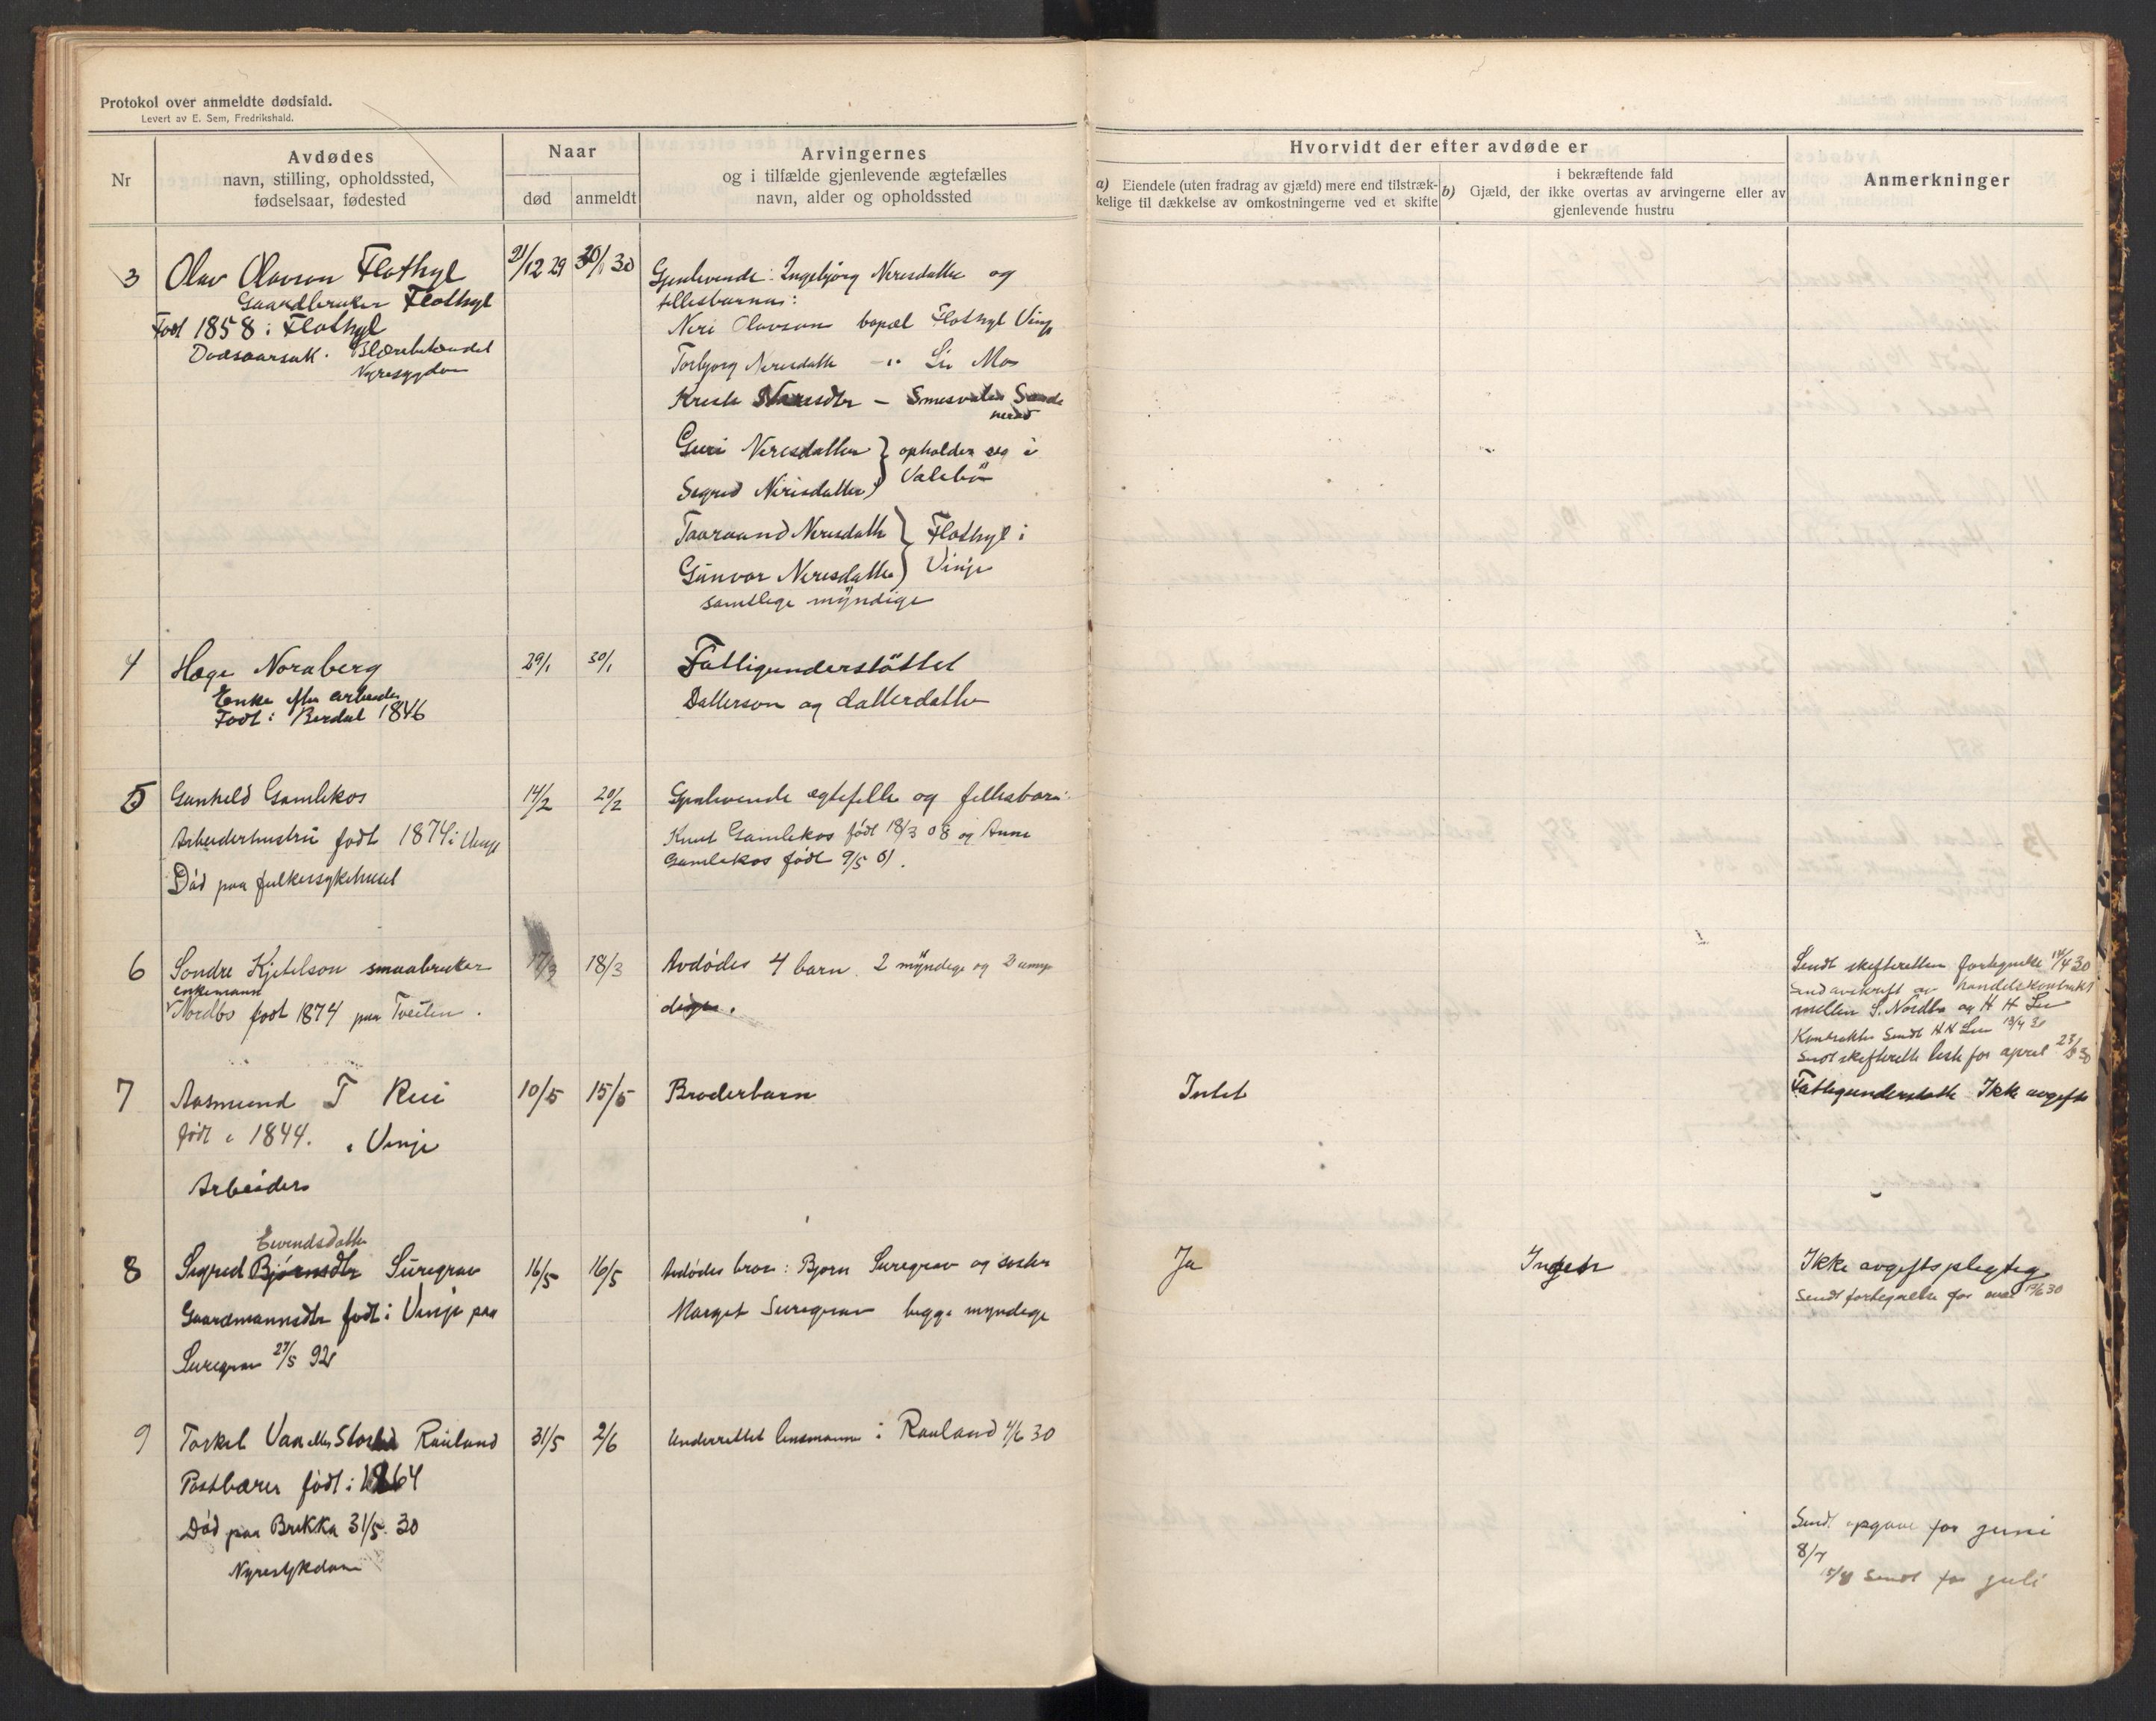 Protokol over anmeldte dødsfald.
Levert av E. Sem, Fredrikshald.
Nr
Avdødes
navn, stilling, opholdssted,
fødselsaar, fødested
Naar
død
anmeldt
Arvingernes
og i tilfælde gjenlevende ægtefælles
navn, alder og opholdssted
Hvorvidt der efter avdøde er
a) Eiendele (uten fradrag av gjæld) mere end tilstræk-
kelige til dækkelse av omkostningerne ved et skifte
i bekræftende fald
b) Gjæld, der ikke overtas av arvingerne eller av
gjenlevende hustru
Anmerkninger
3
Olav Olavson Flothyl
Gaardbruker Flothyl
Født 1858 i Flothyl
Dødsaarsak. Blærebetændel
Nyresygdom
21/12 29
30/1 30
Gjenlevende: Ingebjørg Neresdatter og
fellesbarna:
Neri Olavson bopæl Flothyl Vinje
Torbjorg Neresdatte -"- Li Mo
Neresdtr -
Guri Neresdatter } opholder seg i
Sigrid Nerisdatter } Valebø
Taaraand Neresdatte } Flothyl i
Gunvor Neresdatte } Vinje
samtlege myndige
4
Hæge Noraberg
Enke efter arbeider
Født i Berdal 1846
29/1
30/1
Fattigunderstøttet
Dattersøn og datterdatter
5
Gunhild Gamlekos
Arbeiderhustru født 1874 i Vinje
Død paa fylkessykehuset
14/2
20/2
Gjenlevende egtefelle og fellesbarn:
Knut Gamlekos født 18/3 08 og Anne
Gamlekos født 9/5 01.
6
Sondre Kjetelson smaabruker
enkemann
Nordbø født 1874 paa Tveiten.
17/3
18/3
Avdødes 4 barn. 2 myndige og 2 umyn
dige.
Sendt skifteretten fortegnelse 14/4 30
Send avskrift av handelskontrakt
mellen S. Nordbø og H H Lie
Kontrakten Sendt H H Lie
Sendt skifterette liste for april
7
Aasmund T Rui
født i 1844. i Vinje
Arbeider
10/5
15/5
Broderbarn
Intet
Fattigunderstøtte Ikke avgifts
8
Eivindsdatter
Sigrid Bjørnsdtr Suregrav
Gaardmannsdtr født i Vinje paa
Suregrav 27/5 92
16/5
16/5
Avdødes bror: Bjørn Suregrav og søster
Marget Suregrav begge myndige
Ja
Ingen
Ikke avgiftspligtig
Sendt fortegnelse for mai
9
Torkel Vaa eller Rauland
Postbærer født i 1864
Død paa Brekka 31/5 30
Nyresykdom
31/5
2/6
Underrettet lensmann i Rauland 4/6 30
Sendt opgave for juni
8/7
15/8 sendt for juli